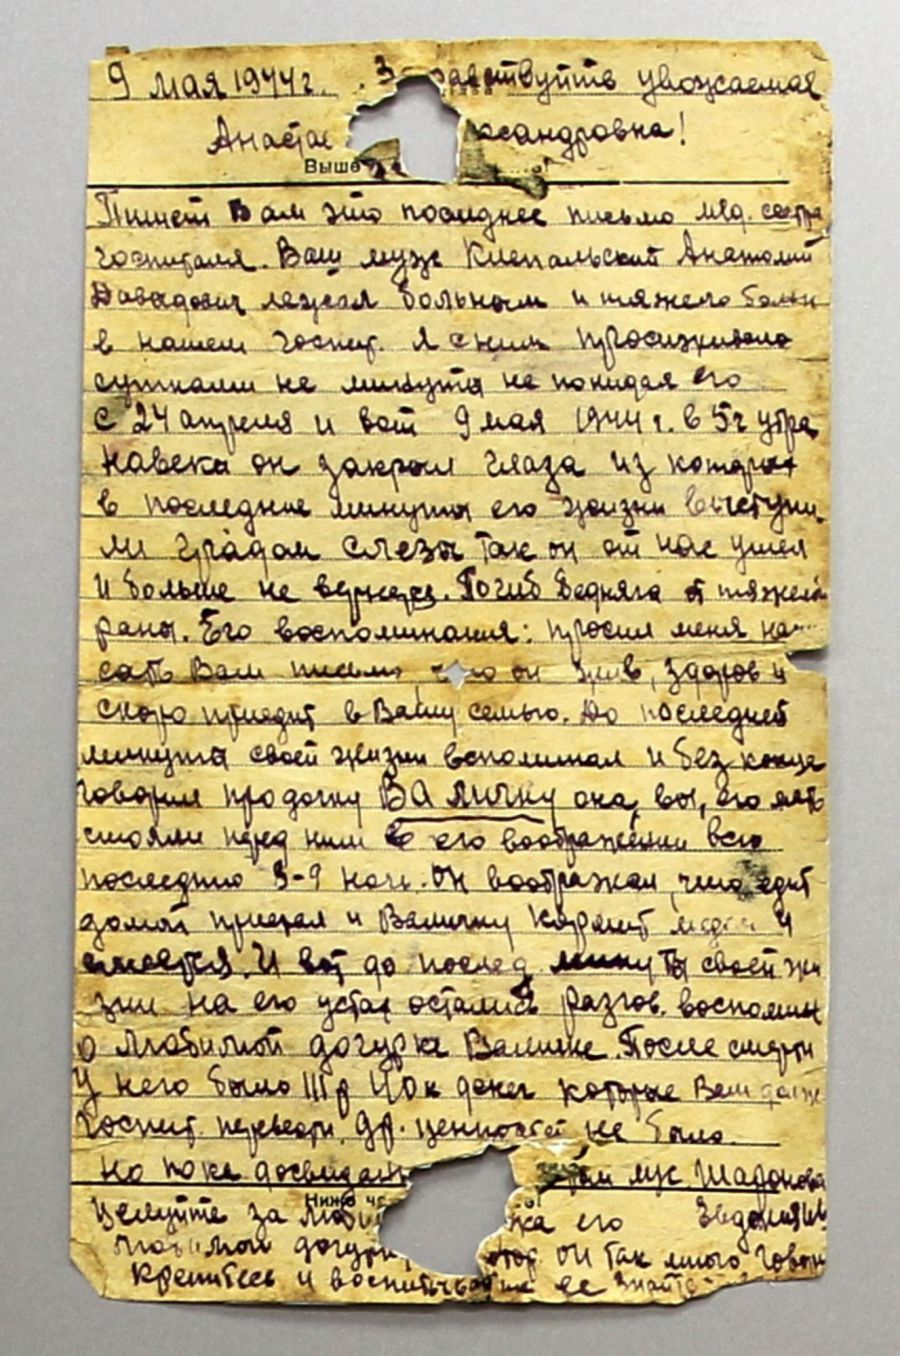 9 мая 1944 г. Здравствуйте уважаемая
Анаста ксандровна!
Выше
Пишет Вам это последнее письмо мед. сестра
госпиталя. Ваш муж Анатолий
Давыдович лежал больным и тяжело болен
в нашем госпит. я с ним просиживала
сутками не минуты не покидая его
с 24 апреля и вот 9 мая 1944 г. в 5 ч утра
навеки он закрыл глаза из которых
в последние минуты его жизни выступи
ли градом слезы так он от нас ушел
и больше не вернется. Погиб бедняга от тяжелой
раны. Его воспоминания: просил меня напи
сать Вам письмо что он жив, здоров и
скоро приедит в Вашу семью. До последней
минуты своей жизни вспоминал и без конца
говорил про дочку Валичку она, вы, его мать
стояли перед ним в его воображении всю
последнию 8-9 ночь. Он воображал, что едит
домой приехал и Валичку и
смеется. И вот до послед минуты своей жи
зни на его устах остались разгов. воспомин
о любимой дочурке Валичке. После смерти
У него было 111 р 40 к денег которые Вам долж
Госпит. перевести. Др. ценностей не было.
Но пока досвидан Шадонова
Ниже
Целуйте за люби его
любимой дочур он так много говор
Крепитесь и ее